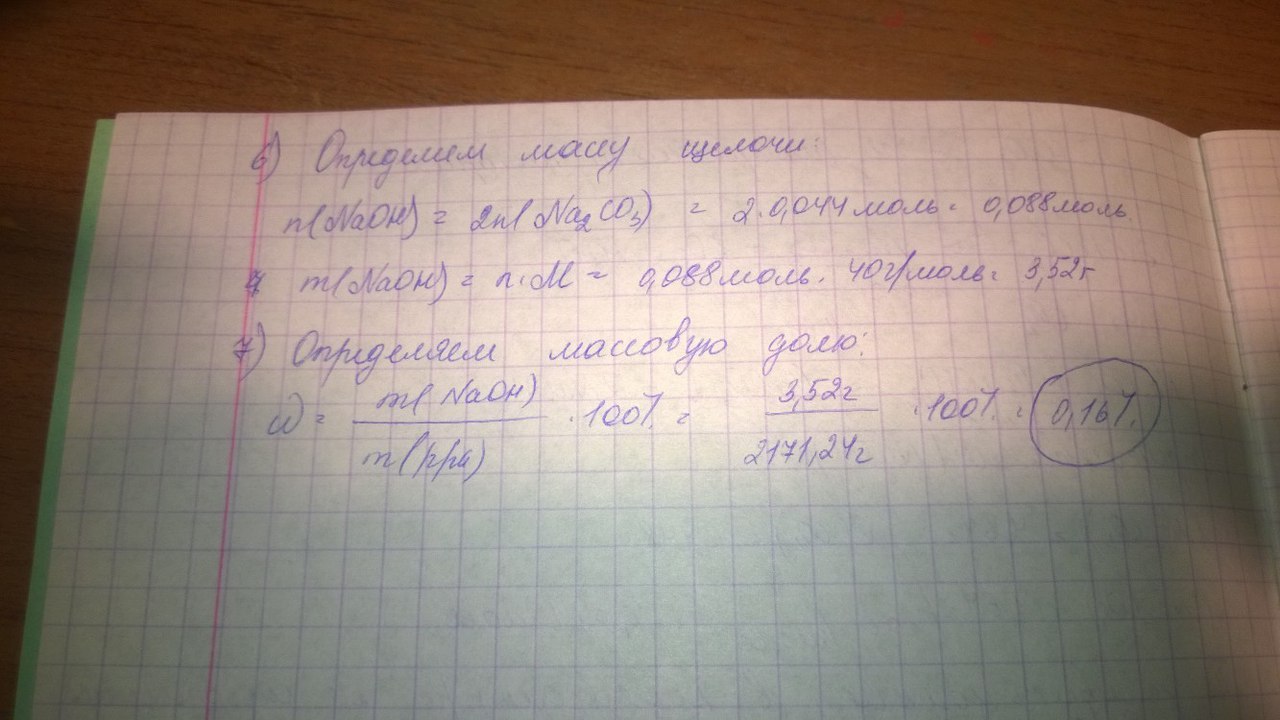 6) Определим массу щелочи:
n(NaOH) = 2n(Na₂CO₃) = 2·0,044моль = 0,088моль.
m(NaOH) = n·M = 0,088моль · 40г/моль = 3,52г
7) Определяем массовую долю:
ω = m(NaOH) / m(р-ра) · 100% = 3,52г / 2171,24г · 100% = 0,16%.